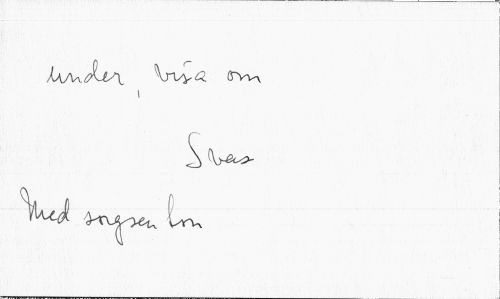 under, visa om
Svas
Med sorgsen ton